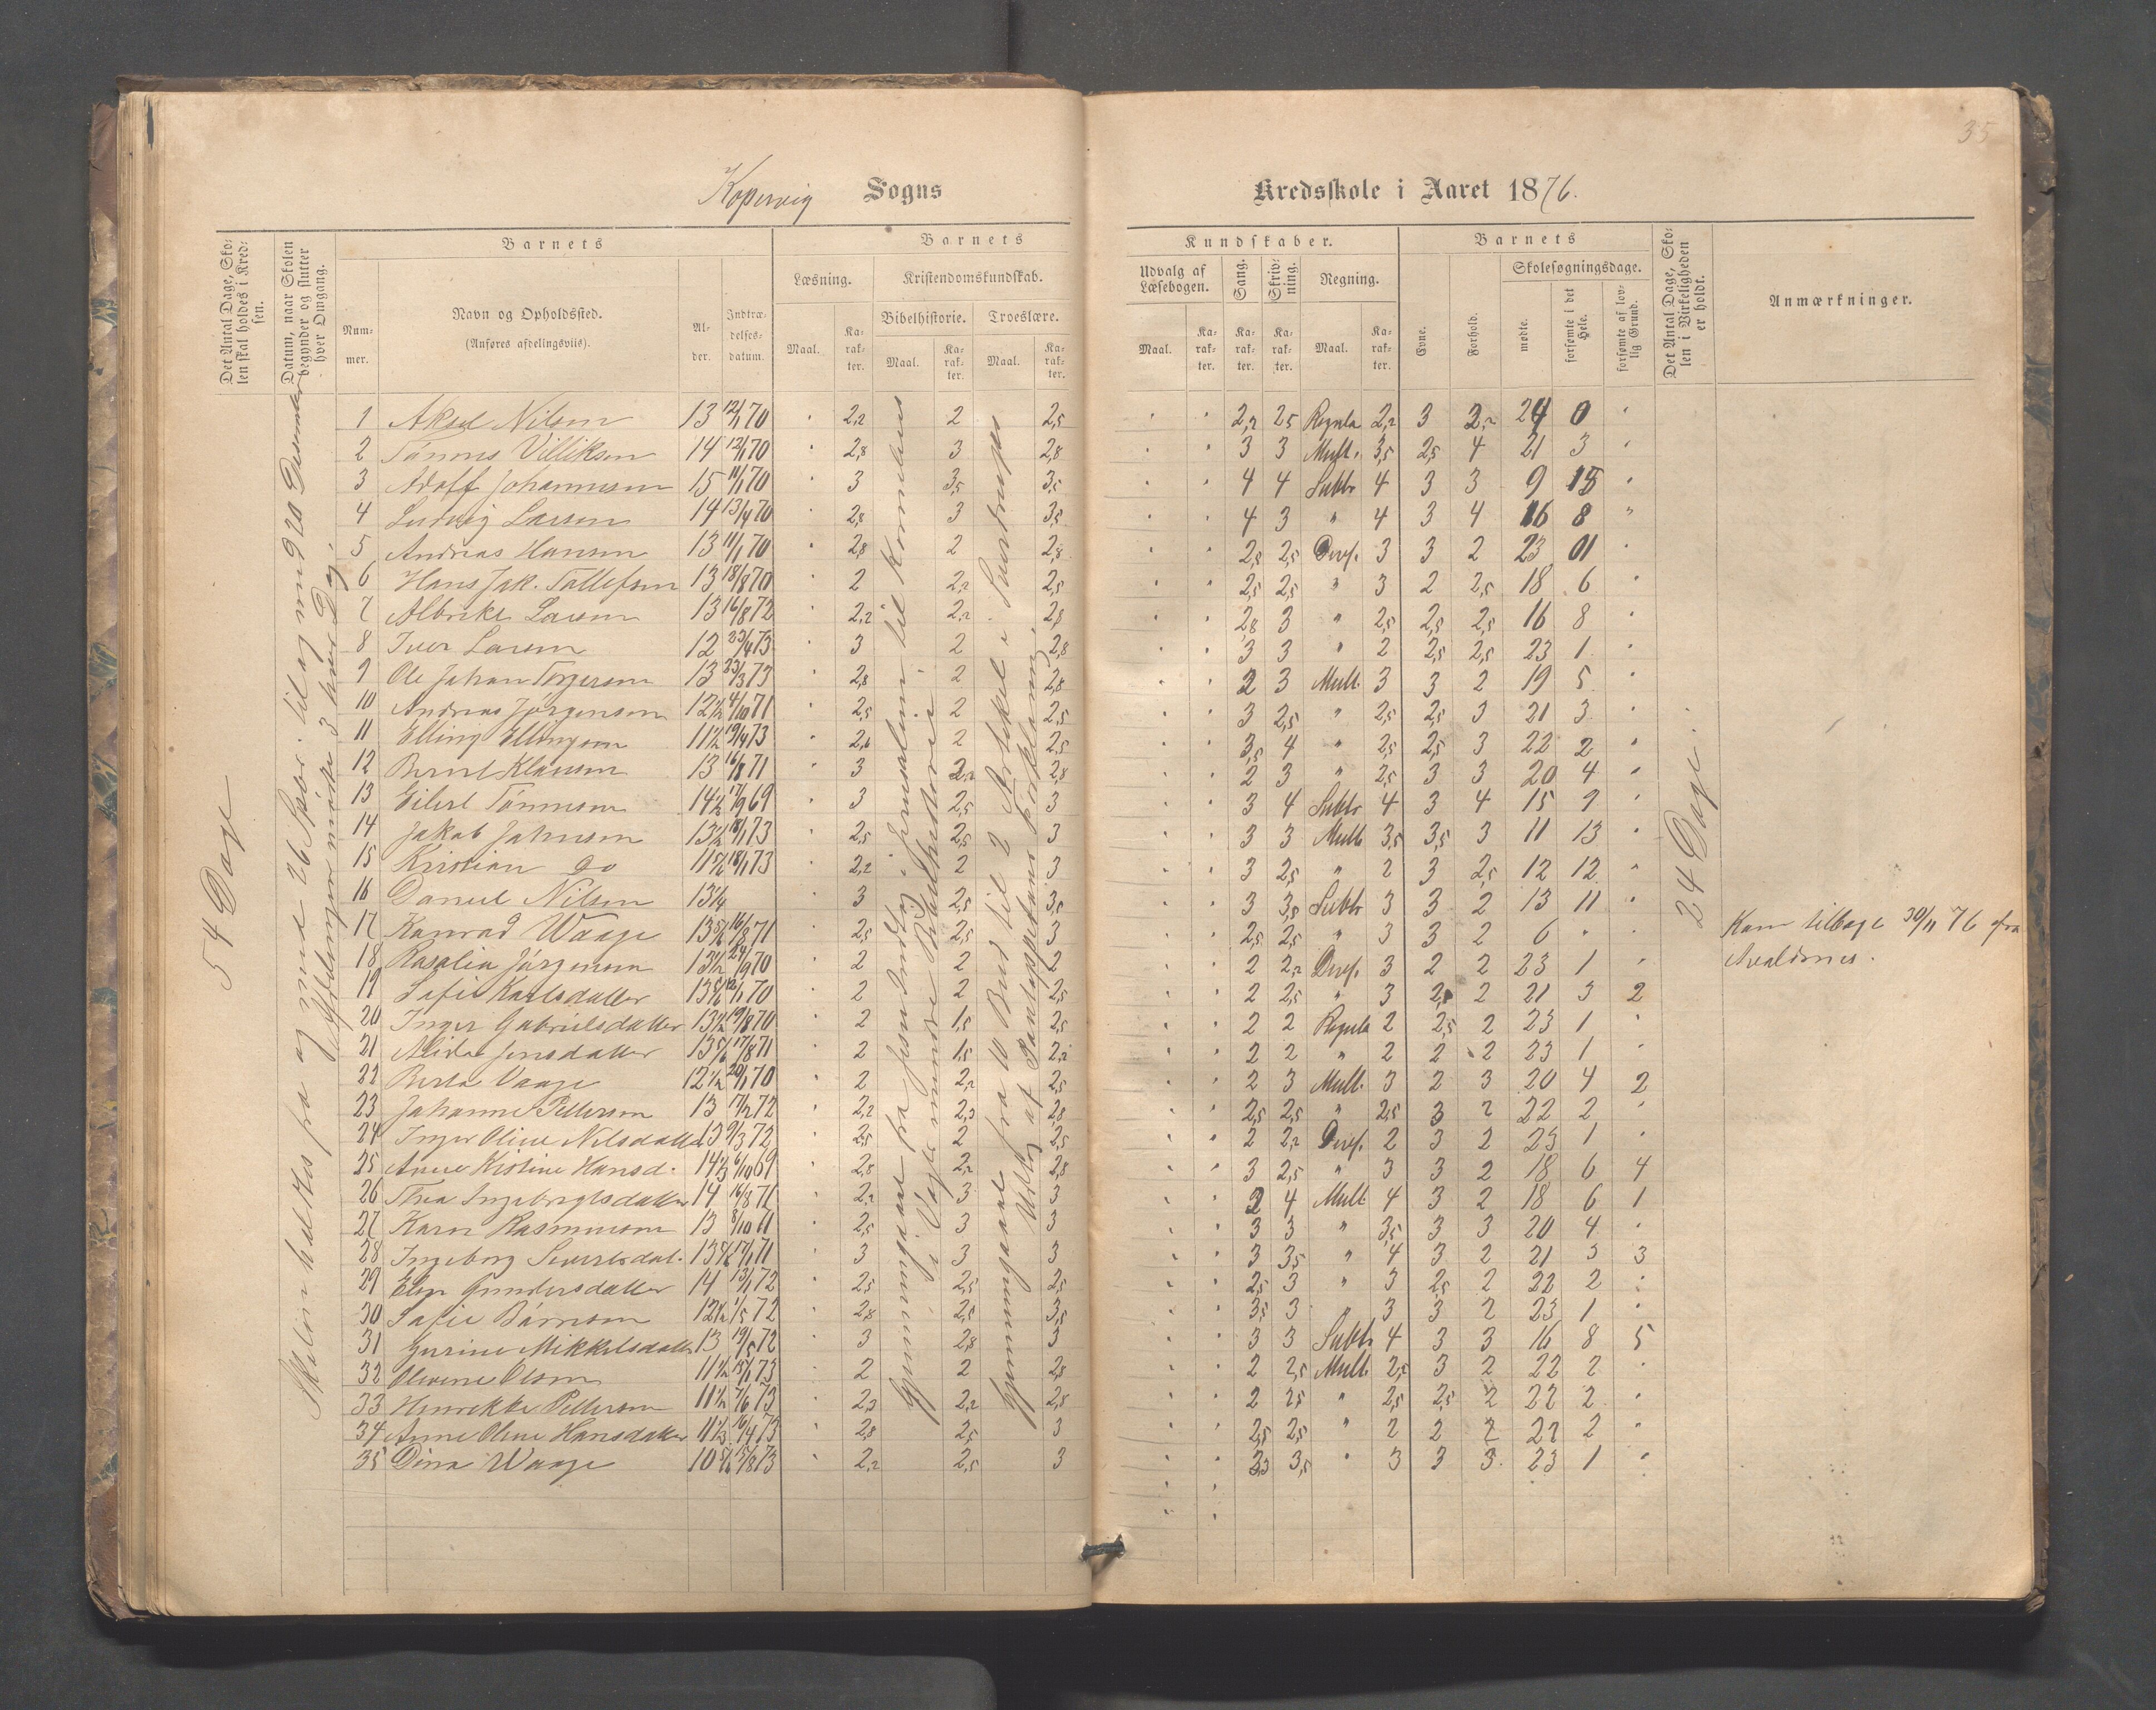 35
Kopervig Sogns
Kredsskole i Aaret 1876.
Det Antal Dage, Skolen skal holdes i Kredsen.
Datum, naar Skolen begynder og slutter hver Omgang.
Barnets
Nummer.
Navn og Opholdssted.
(Anføres afdelingsviis).
Alder.
Indtrædelsesdatum.
Barnets
Læsning.
Kristendomskundskab.
Bibelhistorie.
Troeslære.
Maal.
Karakter.
Maal.
Karakter.
Maal.
Karakter.
Kundskaber.
Udvalg af Læsebogen.
Sang.
Skrivning.
Regning.
Maal.
Karakter.
Karakter.
Karakter.
Maal.
Karakter.
Barnets
Evne.
Forhold.
Skolesøgningsdage.
mødte.
forsømte i det Hele.
forsømte af lovlig Grund.
Det Antal Dage, Skolen i Virkeligheden er holdt.
Anmærkninger.
54 Dage
Skolen holdtes fra og med 26 Sptbr. til og med 20 Desember
Afdelingen mødte 3 hver Dag.
Gjennemgaaet fra Jesu Indtog i Jerusalem til Kornelius
i Vogts mindre Bibelhistorie
Gjennemgaaet fra 10 Bud til 2 Artikel i Sverdrups
Udtog af Pontoppidans Forklaring
24 Dage
1 Aksel Nilsen 13 12/1 70 2,2 2 2,5 2,2 2,5 Regula 2,2 3 2,2 24 0
2 Tønnes Villiksen 14 12/1 70 2,8 3 2,8 3 3 Mult. 3,5 2,5 4 21 3
3 Adolf Johannesen 15 11/1 70 3 3,5 3,5 4 4 Subtr 4 3 3 9 15
4 Ludvig Larsen 14 13/4 70 2,8 3 3,5 4 3 " 4 3 4 16 8
5 Andreas Hansen 13 11/1 70 2,8 2 2,8 2,5 2,5 Divis. 3 3 2 23 01
6 Hans Jak. Tollefsen 13 18/8 70 2 2,2 2,5 2,5 2,5 " 3 2 2,5 18 6
7 Albrikt Larsen 13 16/8 72 2,2 2,2 2,8 2,8 3 " 2,5 2,5 2,5 16 8
8 Iver Larsen 12 23/4 73 3 2 2,8 3 3 " 2 2,5 2,5 23 1
9 Ole Johan Torgersen 13 23/3 73 2,8 2 2,8 2 3 Mult. 3 3 2 19 5
10 Andreas Jørgensen 12 1/2 4/10 71 2,5 2 2,5 3 2,5 " 2,5 2,5 3 21 3
11 Elling Ellingsen 11 1/2 19/4 73 2,6 2 2,5 3,5 4 " 2,5 2,5 3 22 2
12 Bernt Klausen 13 16/8 71 3 2,2 2,8 2 3 " 2,5 3 3 20 4
13 Eilert Tønnesen 14 1/2 17/9 69 3 2,5 3 3 4 Subtr 4 3 4 15 9
14 Jakob Johnsen 13 1/2 18/1 73 2,5 2,5 3 3 3 Mult 3,5 3,5 3 11 13
15 Kristian do 11 5/6 18/1 73 2,2 2 3 3 2,5 " 2 3 2,5 12 12
16 Daniel Nilsen 13 1/4 3 2,5 3,5 3 3,5 Subtr 3 3 2 13 11
17 Konrad Waage 13 5/6 16/8 71 2,5 2,5 3 2,5 2,5 " 3 3 2 6 Kom tilbage 30/11 76 fra
Avaldsnes.
18 Rosalia Jørgensen 13 1/2 24/9 70 2 2 2 2 2,2 Divis. 3 2 2 23 1
19 Sofie Karlsdatter 13 5/6 12/1 70 2 2 2,5 2 2,5 " 3 2,5 2 21 3 2
20 Inger Gabrielsdatter 13 1/2 19/8 70 2 1,5 2,5 2 2 Regula 2 2,5 2 23 1
21 Alida Jensdatter 13 5/6 17/8 71 2 1,5 2,2 2 2 " 2 2 2 23 1
22 Berta Vaage 12 1/2 20/1 70 2 2,2 2,5 2 3 Mult. 3 2 3 20 4 2
23 Johanne Pettersen 13 17/2 72 2,2 2,3 2,8 2,5 2,5 " 2,5 3 2 22 2
24 Inger Oline Nilsdatter 13 9/3 72 2,5 2 2,5 2 2,2 Divis. 2 3 2 23 1
25 Anne Kistine Hansd. 14 1/3 6/10 69 2,8 2,2 2,8 3 2,5 " 3 3 2 18 6 4
26 Thea Ingebrigtsdatter 14 16/8 71 2,2 3 3 2 4 Mult 4 3 2 18 6 1
27 Karn Rasmussen 13 8/10 71 2,5 3 3 3 3 " 3,5 3 3 20 4
28 Ingeborg Sivertsdat. 13 5/6 17/1 71 3 3 3 3 3,5 " 4 3 2 21 3 3
29 Elen Gundersdatter 14 13/1 72 2,5 2,5 2,5 2,5 3 " 3 2,5 2 22 2
30 Sofie Børnsen 12 1/2 1/5 72 2,8 2,5 3,5 3,5 3 " 3 3 2 23 1
31 Gurine Mikkelsdatter 13 19/5 72 3 2,8 3 3 3 Subtr 4 3 3 16 8 5
32 Olevine Olsen 11 1/2 15/1 73 2 2 2,8 2 2,5 Mult. 2,5 3 2 22 2
33 Henrikke Pettersen 11 1/2 7/6 73 2,3 2,2 2,8 2 2,5 " 2,5 2,5 2 22 2
34 Anne Oline Hansdatter 11 1/3 16/4 73 2,8 2,5 3 2,5 2,5 " 2 2 2 22 2
35 Dina Waage 10 5/6 15/8 73 2,2 2,5 3 3,3 3,5 " 3 3 3 23 1